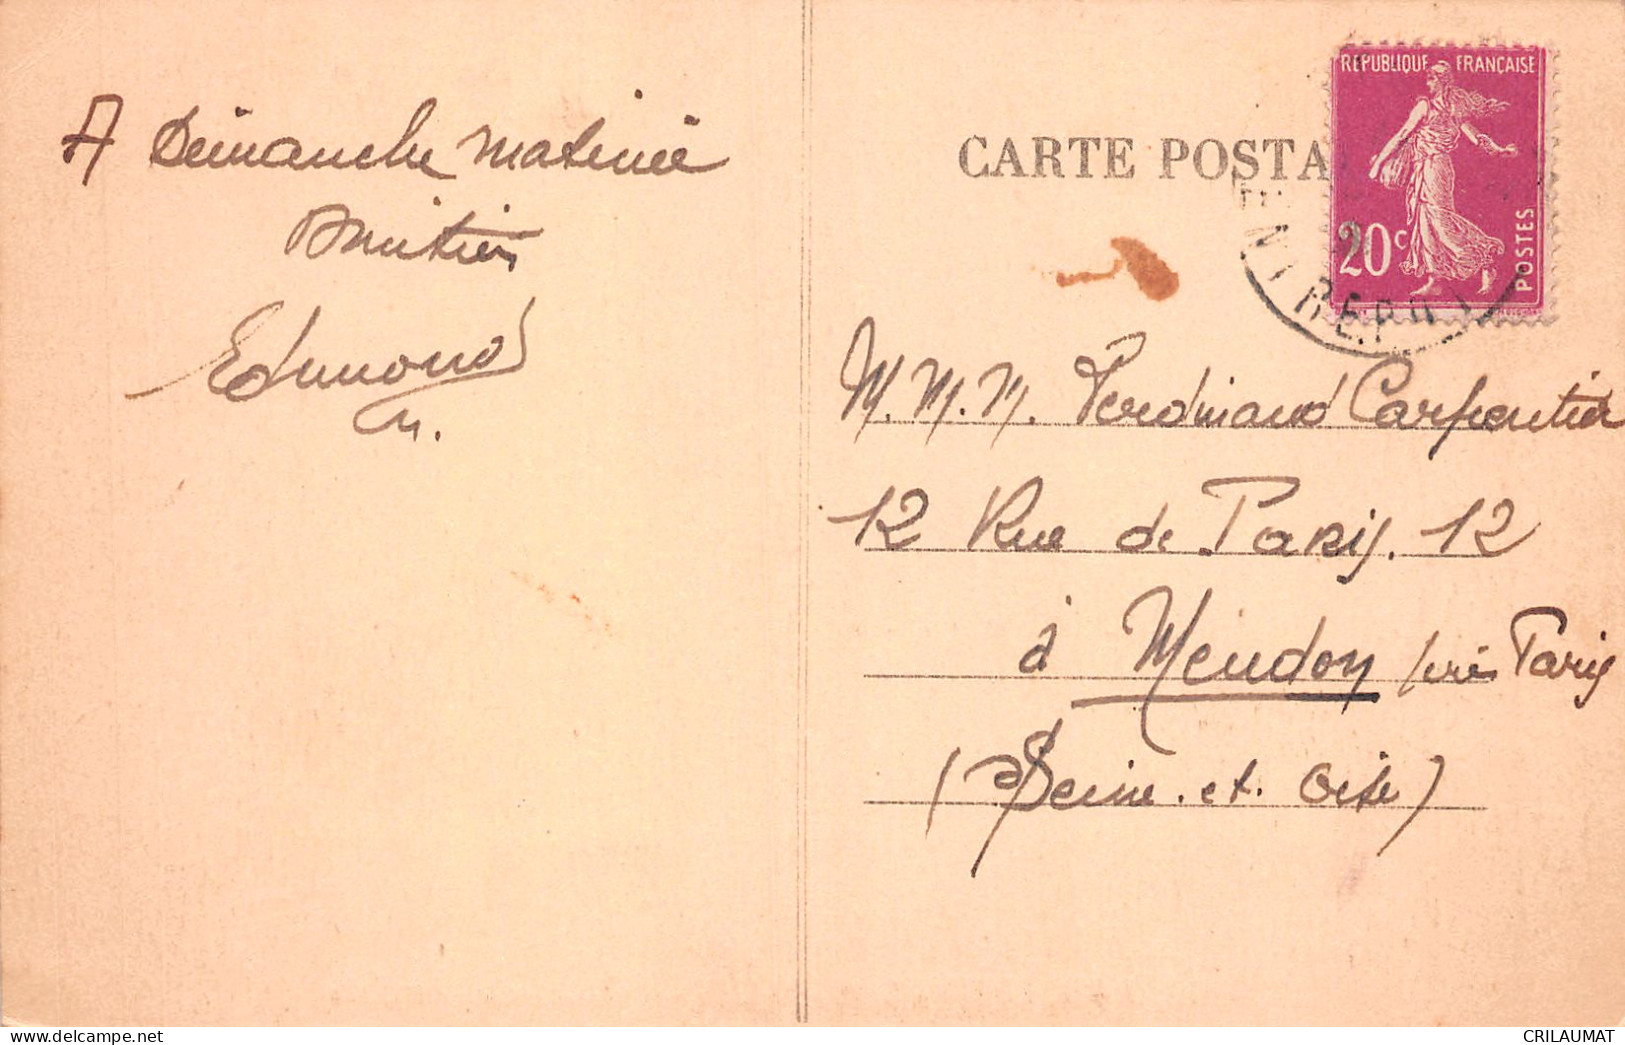 A Dimanche matinée
Amitiés
Edmond
CARTE POSTA
REPUBLIQUE FRANÇAISE
20c
POSTES
M. M. M. Ferdinand Carpentier
12 Rue de Paris. 12
à Meudon près Paris
(Seine. et. Oise)
www.delcampe.net
CRILAUMAT